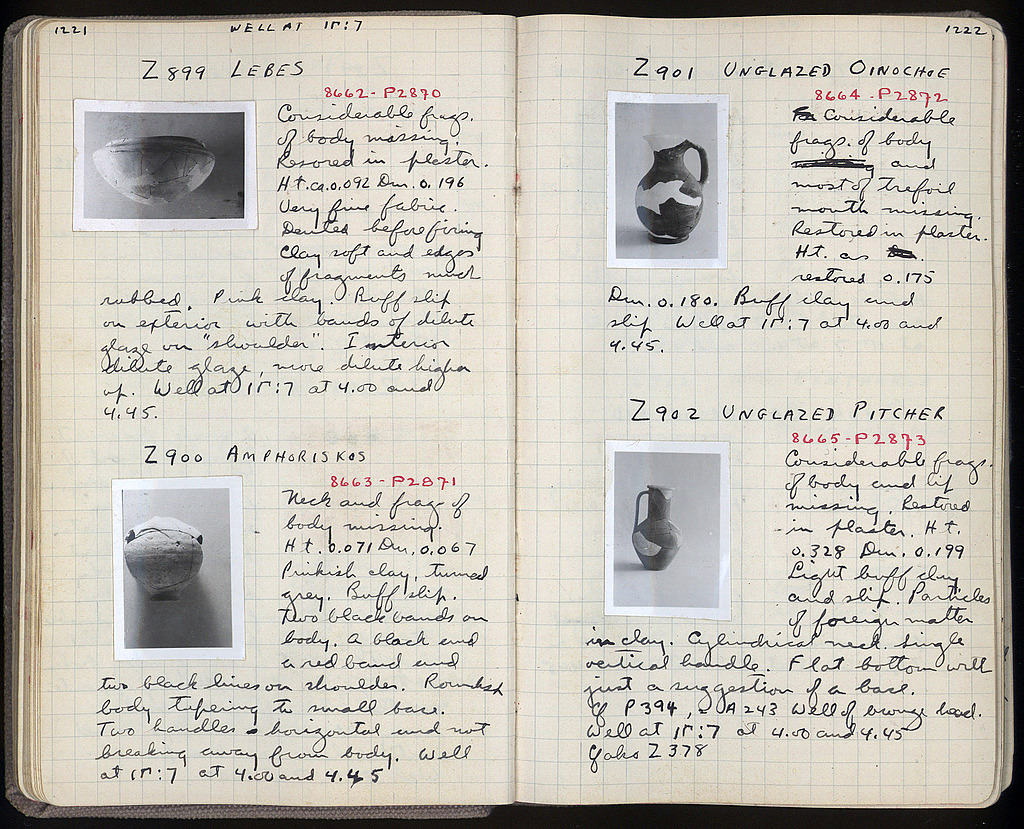 1221
WELL AT ΙΓ:7
Z 899 LEBES
8662-P2870
Considerable frags.
of body missing.
Resored in plaster.
Ht. ca. 0.092 Dm. 0.196
Very fine fabric.
Dented before firing
Clay soft and edges
of fragments much
rubbed. Pink clay. Buff slip
on exterior with bands of dilute
glaze on "shoulder". Interior
dilute glaze, more dilute higher
up. Well at ΙΓ:7 at 4.00 and
4.45.
Z 900 AMPHORISKOS
8663-P2871
Neck and frag of
body missing.
Ht. 0.071 Dm. 0.067
Pinkish clay, turned
grey. Buff slip.
Two black bands on
body. A black and
a red band and
two black lines on shoulder. Roundish
body tapering to small base.
Two handles - horizontal and not
breaking away from body. Well
at ΙΓ:7 at 4.00 and 4.45
1222
Z 901 UNGLAZED OINOCHOE
8664-P2872
Considerable
frags. of body
and
most of trefoil
mouth missing.
Restored in plaster.
Ht. as
restored 0.175
Dm. 0.180. Buff clay and
slip Well at ΙΓ:7 at 4.00 and
4.45.
Z 902 UNGLAZED PITCHER
8665-P2873
Considerable frags.
of body and lip
missing. Restored
in plaster. Ht.
0.328 Dm. 0.199
Light buff clay
and slip. Particles
of foreign matter
in clay. Cylindrical neck. Single
vertical handle. Flat bottom with
just a suggestion of a base.
Cf P394, = A243 Well of bronze head.
Well at ΙΓ:7 at 4.00 and 4.45
Cf also Z 378